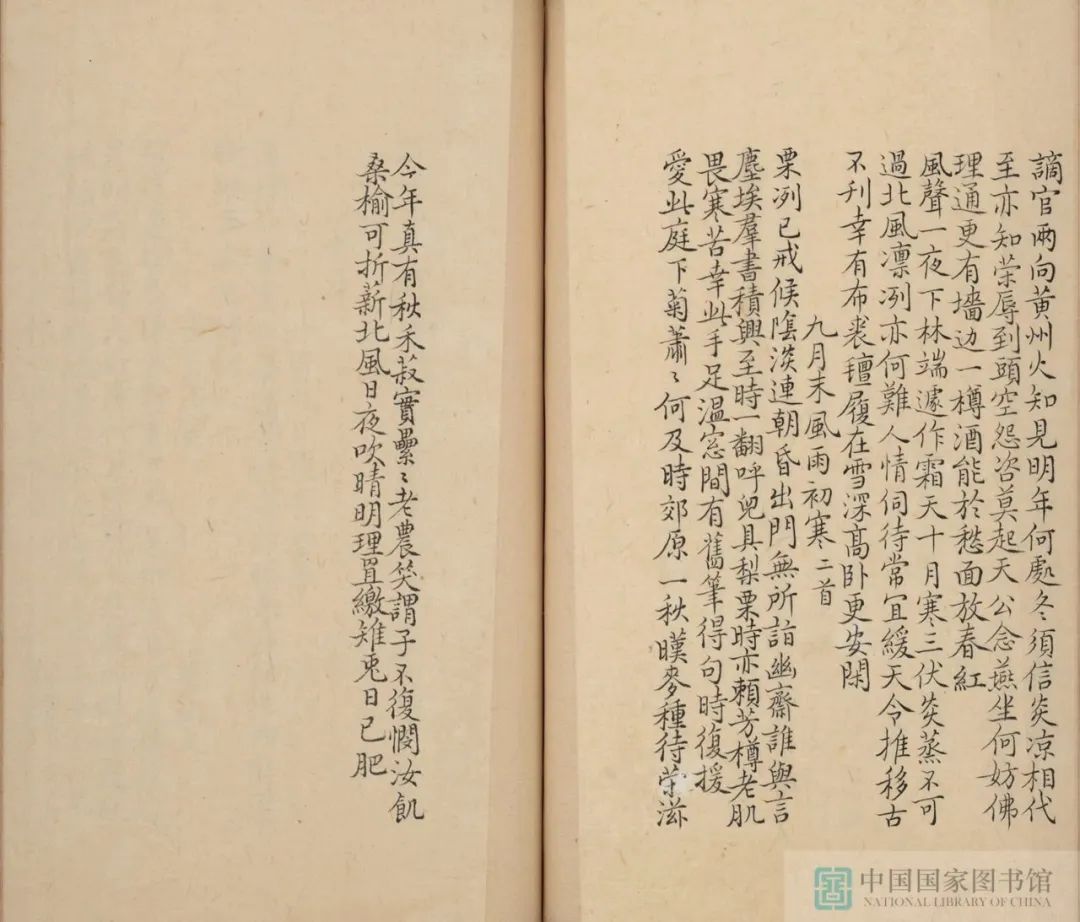 謫官兩向黄州火知見明年何處冬須信炎凉相代
至亦知荣辱到頭空怨咨莫起天公念燕坐何妨佛
理通更有墙边一樽酒能於愁面放春紅
風聲一夜下林端遽作霜天十月寒三伏炎蒸不可
過北風凛冽亦何難人情伺待常宜緩天令推移古
不刋幸有布裘氊履在雪深髙卧更安閑
九月末風雨初寒二首
栗冽已戒候陰淡連朝昏出門無所詣幽齋誰與言
塵埃羣書積興至時一翻呼兒具梨栗時亦頼芳樽老肌
畏寒苦幸此手足温窓間有舊筆得句時復援
愛此庭下菊蕭〻何及時郊原一秋暵麥種待荣滋
今年真有秋禾菽實纍〻老農笑謂子不復憫汝飢
桑榆可折薪北風日夜吹晴明理罝繳雉兎日已肥
中国国家图书馆
NATIONAL LIBRARY OF CHINA